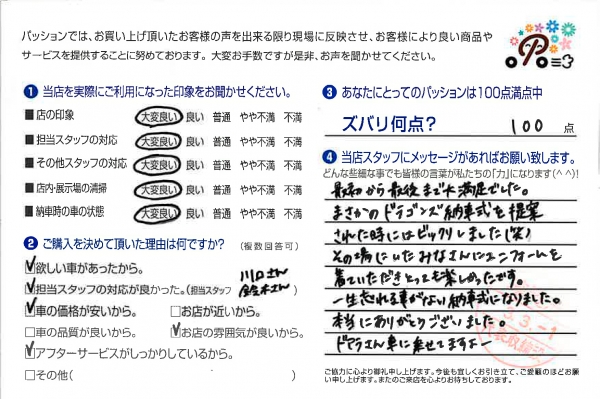 パッションでは、お買い上げ頂いたお客様の声を出来る限り現場に反映させ、お客様により良い商品や
サービスを提供することに努めております。 大変お手数ですが是非、お声を聞かせてください。
❶ 当店を実際にご利用になった印象をお聞かせください。
■ 店の印象 大変良い 良い 普通 やや不満 不満
■ 担当スタッフの対応 大変良い 良い 普通 やや不満 不満
■ その他スタッフの対応 大変良い 良い 普通 やや不満 不満
■ 店内・展示場の清掃 大変良い 良い 普通 やや不満 不満
■ 納車時の車の状態 大変良い 良い 普通 やや不満 不満
❷ ご購入を決めて頂いた理由は何ですか? (複数回答可)
☑欲しい車があったから。
☑担当スタッフの対応が良かった。(担当スタッフ 川口さん 鈴木さん )
☑車の価格が安いから。 □お店が近いから。
□車の品質が良いから。 ☑お店の雰囲気が良いから。
☑アフターサービスがしっかりしているから。
□その他( )
❸ あなたにとってのパッションは100点満点中
ズバリ何点? 100 点
❹ 当店スタッフにメッセージがあればお願い致します。
どんな些細な事でも皆様の言葉が私たちの「力」になります(^^)!
最初から最後まで大満足でした。
まさかのドラゴンズ納車式を提案
された時にはビックリしました(笑)
その場にいたみなさんにユニフォームを
着ていただきとっても楽しめたです。
一生忘れる事がない納車式になりました。
本当にありがとうございました。
ドアラさん車に乗せてますよー
ご協力に心より御礼申し上げます。今後も宜しくお引き立て、ご愛顧のほどお願い申し上げます。またのご来店を心よりお待ちしております。